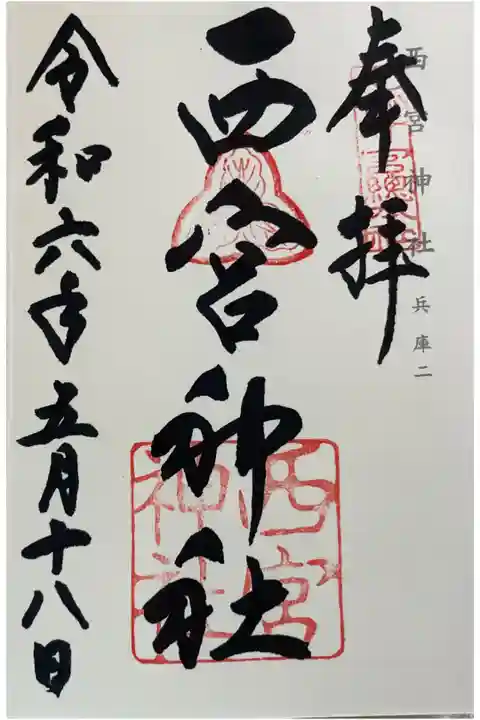 西宮神社 兵庫二
奉拝
西宮神社
西宮
神社
令和六年五月十八日